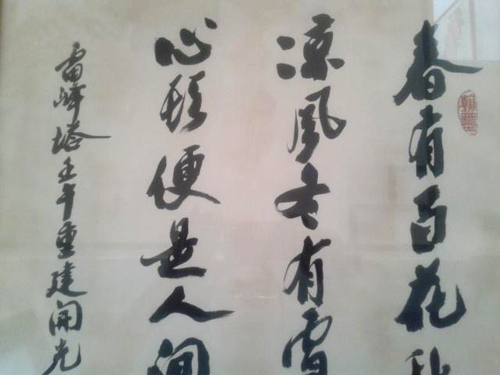 春有百花秋
凉風冬有雪
心頭便是人間
雷峰塔壬午重建開光